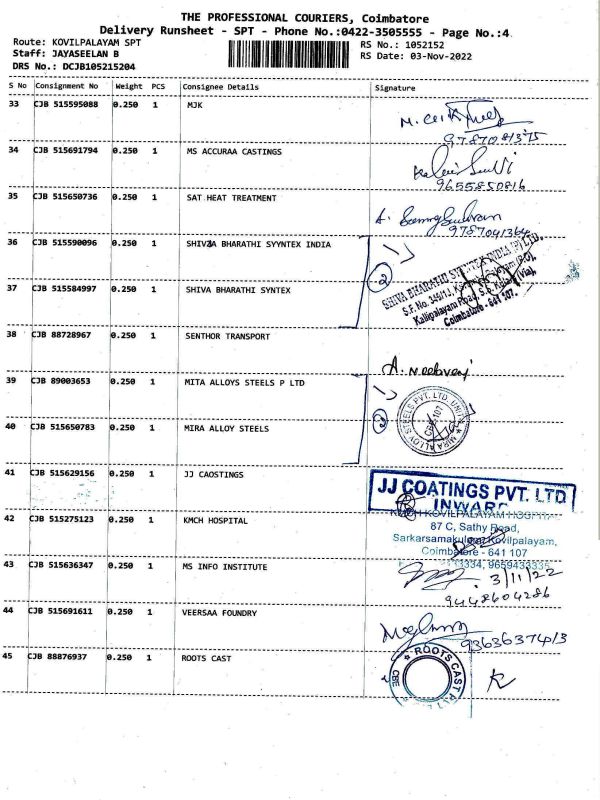 THE PROFESSIONAL COURIERS, Coimbatore
Delivery Runsheet - SPT - Phone No.:0422-3505555 - Page No.:4
Route: KOVILPALAYAM SPT
Staff: JAYASEELAN B
DRS No.: DCJB105215204
RS No.: 1052152
RS Date: 03-Nov-2022
S No Consignment No Weight PCS Consignee Details Signature
33 CJB 515595088 0.250 1 MJK
9787081375
34 CJB 515691794 0.250 1 MS ACCURAA CASTINGS
9655850816
35 CJB 515650736 0.250 1 SAT HEAT TREATMENT
A.
9787041364
36 CJB 515590096 0.250 1 SHIVZA BHARATHI SYYNTEX INDIA
2
SHIVA BHARATHI SYNTEX INDIA P LTD.
S.F. No. 349/1,
Kalipalayam Road,
Coimbatore - 641 107.
37 CJB 515584997 0.250 1 SHIVA BHARATHI SYNTEX
38 CJB 88728967 0.250 1 SENTHOR TRANSPORT
A. Neelaveni
39 CJB 89003653 0.250 1 MITA ALLOYS STEELS P LTD
2
MIRA ALLOY STEELS PVT. LTD. UNIT
107
40 CJB 515650783 0.250 1 MIRA ALLOY STEELS
41 CJB 515629156 0.250 1 JJ CAOSTINGS
JJ COATINGS PVT. LTD
INWARD
42 CJB 515275123 0.250 1 KMCH HOSPITAL
KMCH KOVILPALAYAM HOSPITAL
87 C, Sathy Road,
Sarkarsamakulam, Kovilpalayam,
Coimbatore - 641 107
33334, 9659433335
43 CJB 515636347 0.250 1 MS INFO INSTITUTE
3/11/22
9448604286
44 CJB 515691611 0.250 1 VEERSAA FOUNDRY
9363637413
45 CJB 88876937 0.250 1 ROOTS CAST
ROOTS CAST PVT
CBE